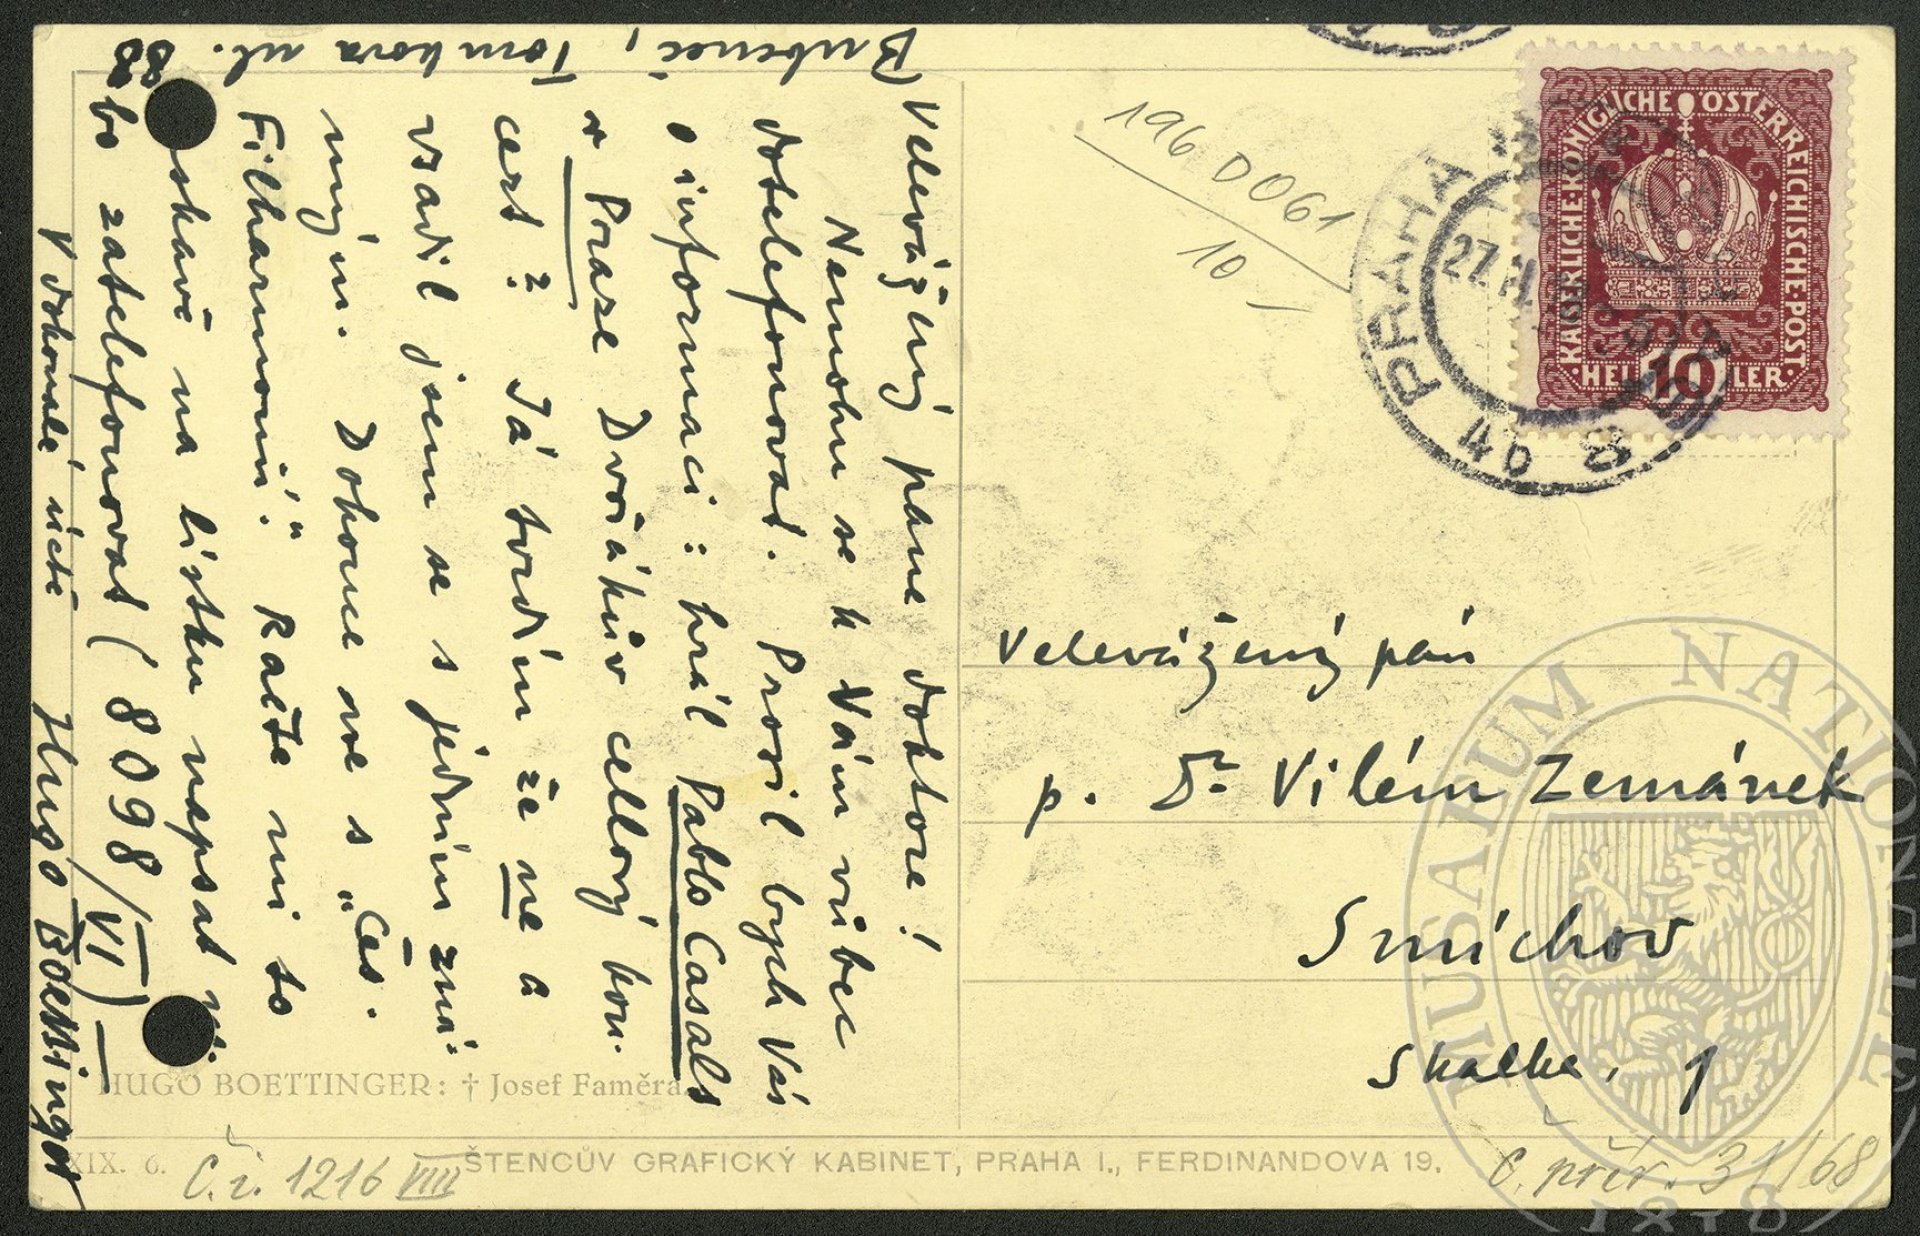 Bubeneč, Tomkova ul. 88
Velevážený pane doktore!
Nemohu se k Vám vůbec
dotelefonovat. Prosil bych Vás
o informaci: hrál Pablo Casals
v Praze Dvořákův cellový kon-
cert? Já tvrdím že ne a
vsadil jsem se s jedním zná-
mým. Dokonce ne s „Čes.
Filharmonií." Račte mi to
laskavě na lístku napsat n.
bo zatelefonovat (8098/VI)
V dokonalé úctě Hugo Boettinger
196 D 061
10
PRAHA
27.
4b 8
KAISERLICHE·KÖNIGLICHE ÖSTERREICHISCHE·POST
HELLER
10
Velevážený pán
p. Dr Vilém Zemánek
Smíchov
Skalka, 1
HUGO BOETTINGER: † Josef Faměra.
XIX. 6.
Č. i. 1216 VIII
ŠTENCŮV GRAFICKÝ KABINET, PRAHA I., FERDINANDOVA 19.
č. přír. 31/68
MUSAEUM NATIONALE
1818